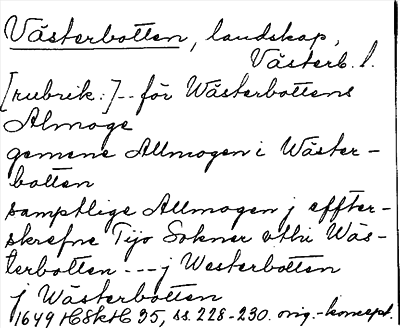 Västerbotten, landskap,
Västerb. l.
[rubrik:]-- för Wästerbottens
Almoge
gemene Allmogen i Wäster-
botten
samptlige Allmogen j effter-
skrefne Tijo Soknar vthi Wäs-
terbotten --- j Westerbotten
j Wästerbotten
1649 HSkH 35, ss. 228-230. orig.-koncept.